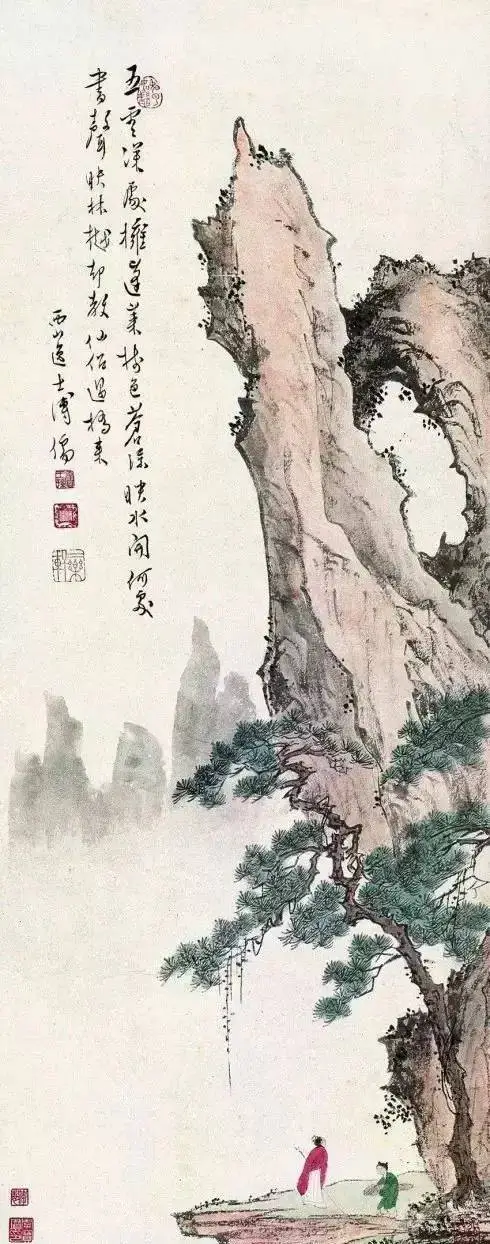 五雲深處擁蓬萊樹色蒼涼映水開何處
書聲映林樾却教仙侶過橋來
西山逸士溥儒